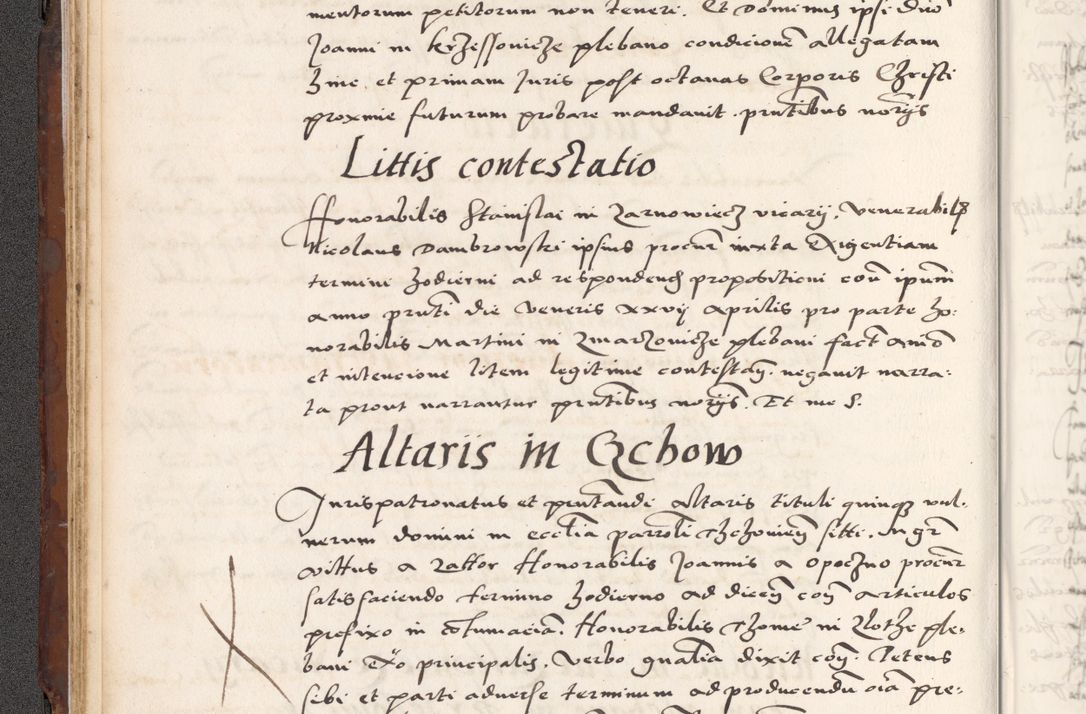 mentorum petitorum non teneri. Et Dominus ipsi duo
Joanni in krzessonicze plebano condicionē allegatam
hinc et primam Juris post octauas Corporis Christi
proxime futurum probare mandauit. pn̄tibus notīs
Littis contestatio
Honorabilis Stanislai in Zarnowiecz vicarij, Venerabilis
Nicolaus Dambrowski ipsius procur iuxta Exigentiam
termini hodierni ad respondend propositioni con ipsum
anno pn̄ti die Veneris xxvij Aprilis pro parte ho:
norabilis Martini in Zmarzonicze plebani fact animo
et intencione litem legitime contestan. negauit narra:
ta prout narrantur pn̄tibus notīs. Et me S.
Altaris in Czchow
Jurispatronatus et pn̄tandi altaris tituli quinq vul:
nerum domini in ecclīa parroli Czchouien sitti. In gr
vittus a Rattor Honorabilis Joannis a Opoczno procur
satisfaciendo termino hodierno ad dicen con articulos
prefixo in cōtumaciā. Honorabilis Thome in Zlothe ple:
bani Exō principalis. Verbo gnalia dixit con. Petens
sibi et parti aduerse terminum ad producendū oīa pre: